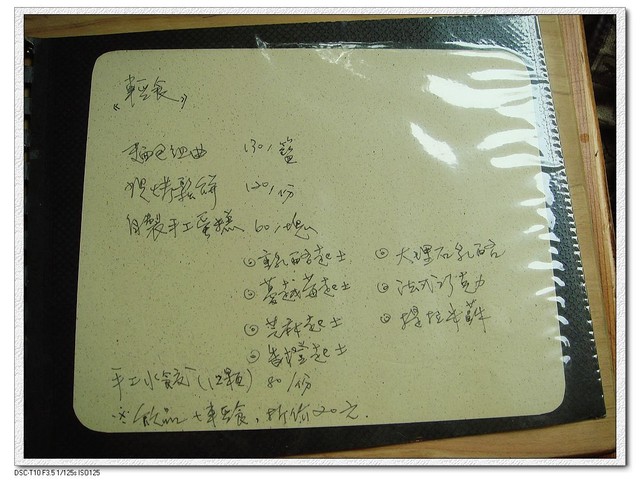 《輕食》
麵包組曲 130/籃
現烤鬆餅 120/份
自製手工蛋糕 60/塊
◎重乳酪起士 ◎大理石乳酪
◎蔓越莓起士 ◎法式巧克力
◎芒果起士 ◎提拉米蘇
◎香橙起士
手工水餃(12顆) 80/份
※飲品+輕食,折價20元.
DSC-T10 F3.5 1/125s ISO125